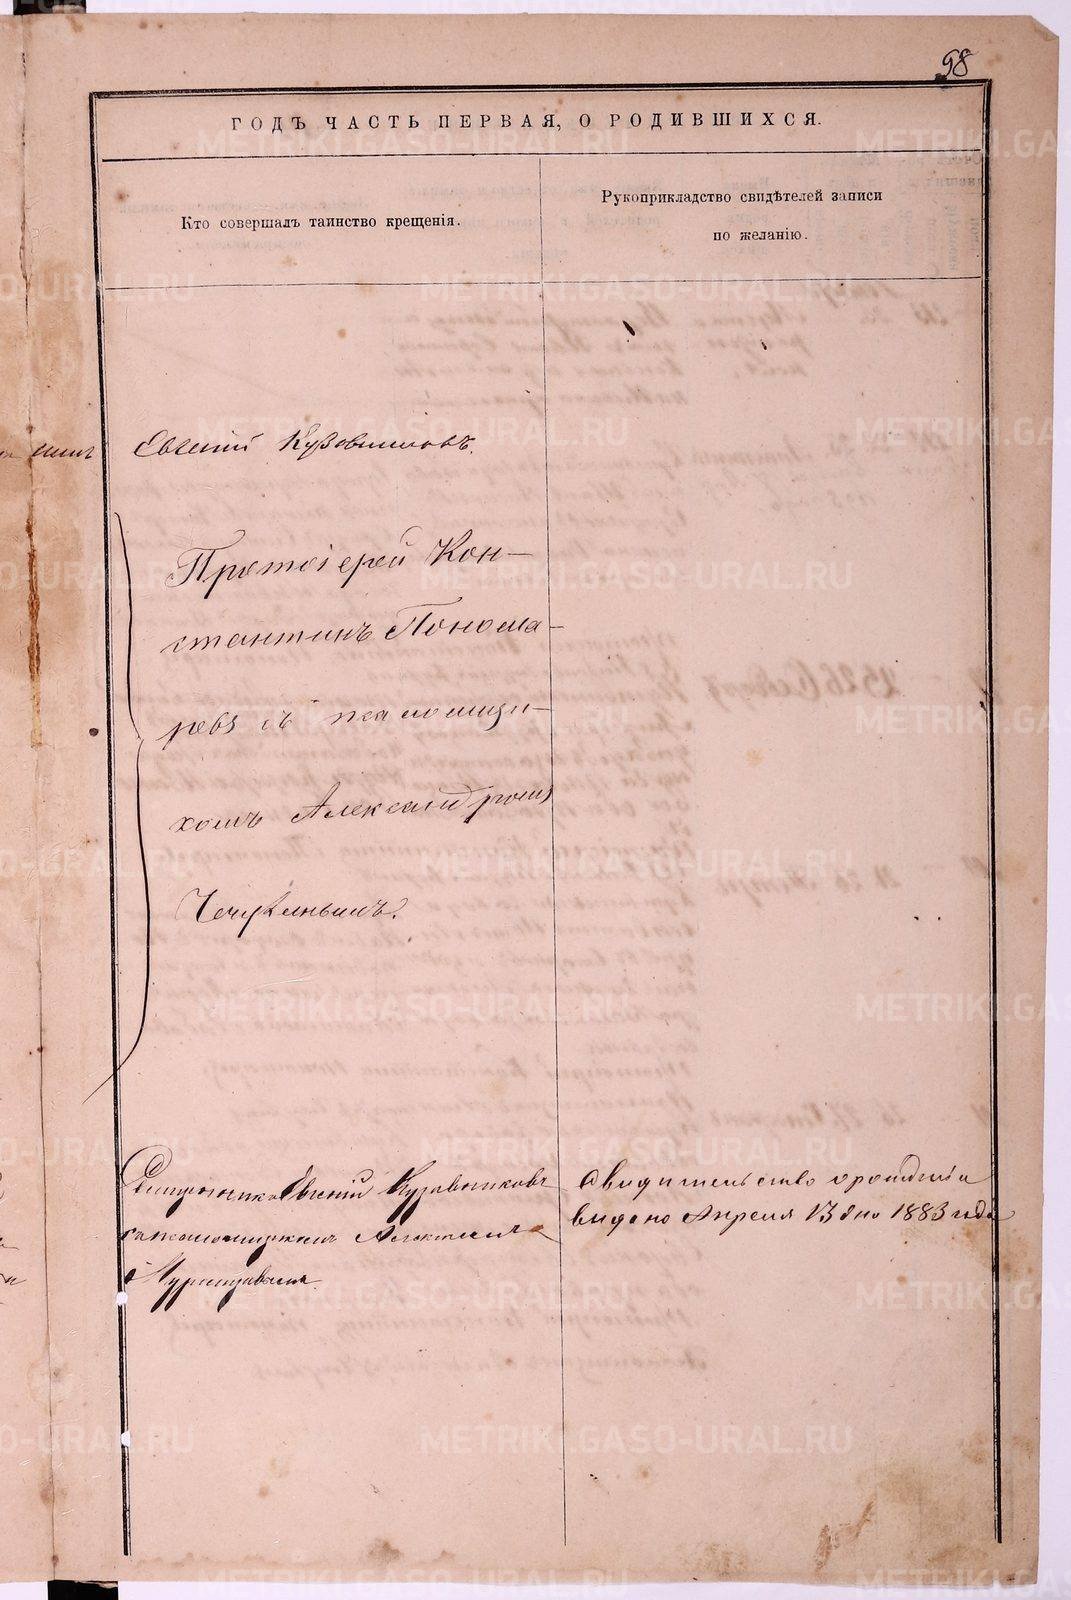 98
ГОДЪ ЧАСТЬ ПЕРВАЯ, О РОДИВШИХСЯ.
Кто совершалъ таинство крещенія.
Рукоприкладство свидѣтелей записи
по желанію.
Евгеній Кузовниковъ.
Протоіерей Кон-
стантинъ Понома-
ревъ съ псаломщи-
комъ Александромъ
Чечулинымъ.
Священникъ Евгеній Кузовниковъ
съ псаломщикомъ
Свидѣтельство о рожденіи
выдано Апреля 13 дня 1883 года
METRIKI.GASO-URAL.RU